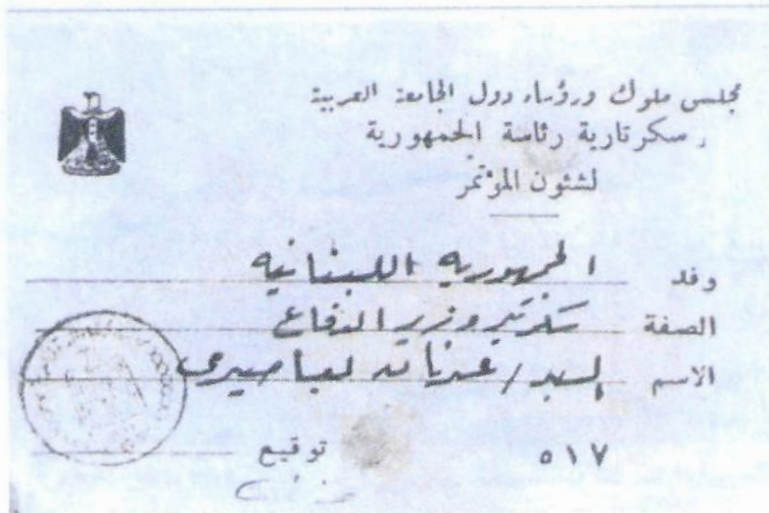 مجلس ملوك ورؤساء دول الجامعة العربية
سكرتارية رئاسة الجمهورية
لشئون المؤتمر
وفد الجمهوريه اللبنانيه
الصفة سكرتير وزير الدفاع
الاسم السيد / عدنان لعباصيرى
٥١٧ توقيع